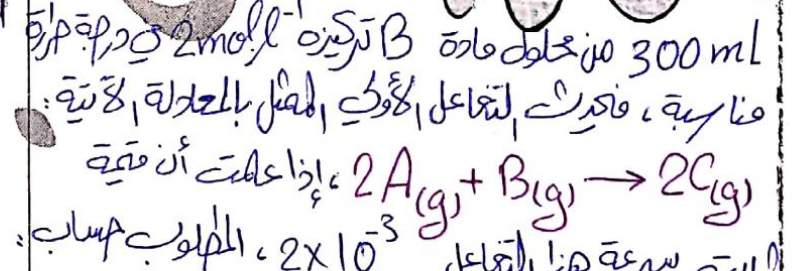 300 ml من محلول مادة B تركيزه 2mol.l⁻¹ في درجة حرارة
مناسبة، فيحدث التفاعل الأولي الممثل بالمعادلة الآتية:
2A(g) + B(g) → 2C(g) ، إذا علمت أن قيمة
سرعة هذا التفاعل 2×10⁻³ ، المطلوب حساب: